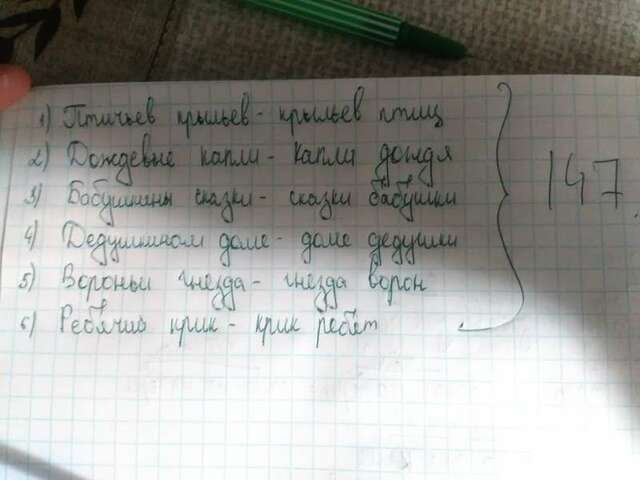 1) Птичьев крыльев - крыльев птиц
2) Дождевые капли - капли дождя
3) Бабушкины сказки - сказки бабушки
4) Дедушкином доме - доме дедушки
5) Вороньи гнезда - гнезда ворон
6) Ребячий крик - крик ребят
147